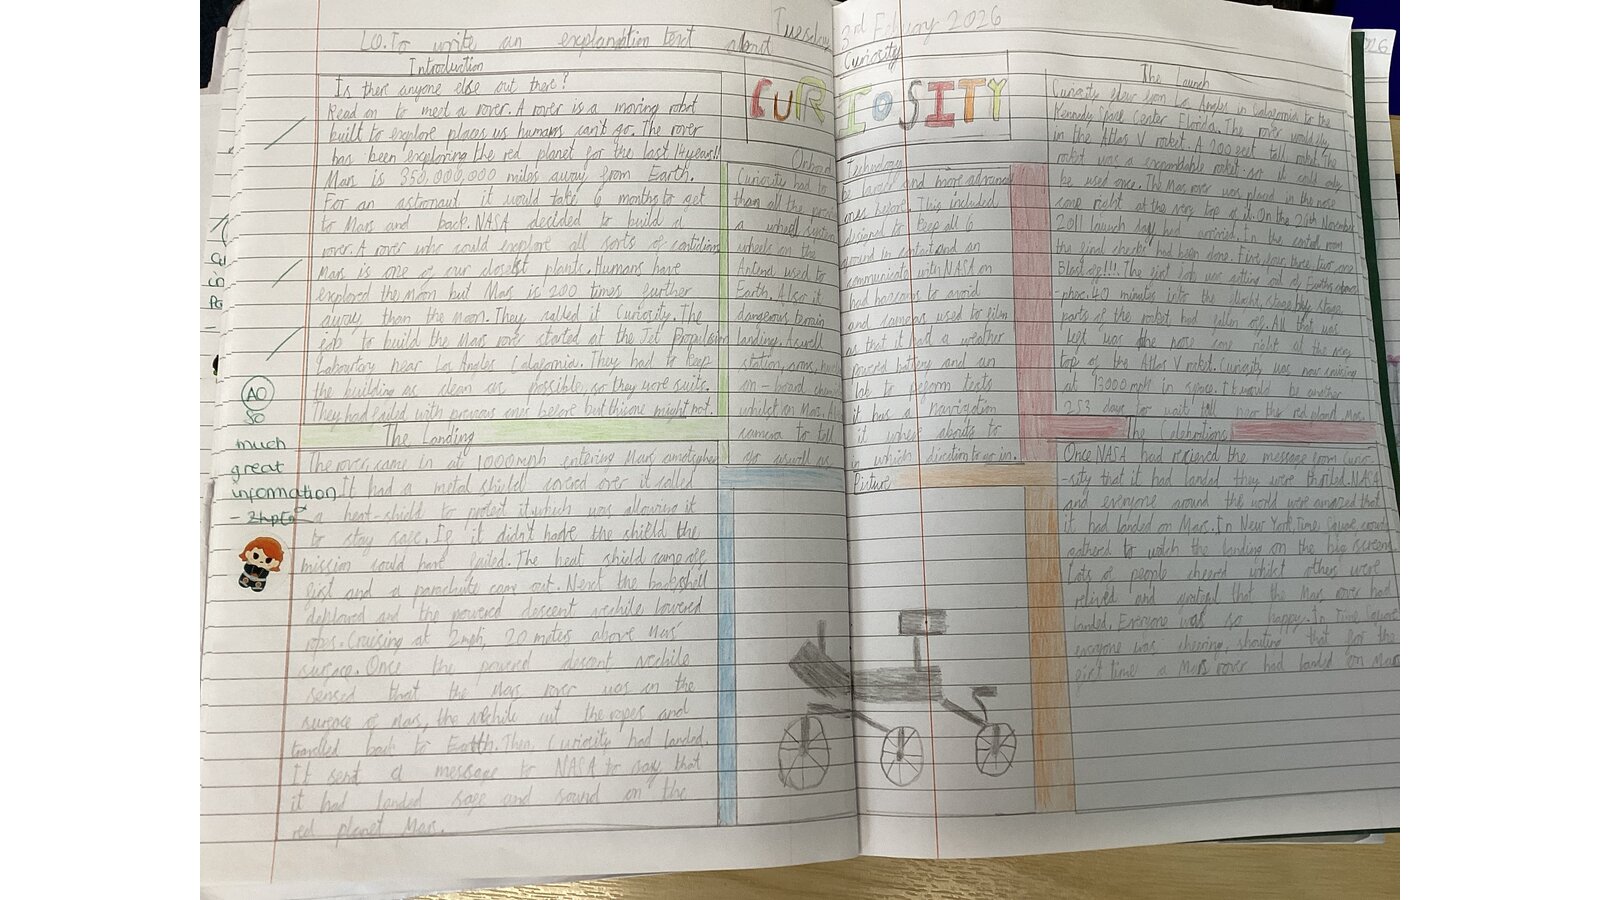 Tuesday 3rd Febuary 2026
LO.To write an explanation text about Curiosity
CURIOSITY
Introduction
Is there anyone else out there?
Read on to meet a rover. A rover is a moving robot
built to explore places us humans can't go. The rover
has been exploring the red planet for the last 14 years!!
Mars is 350,000,000 miles away from Earth.
For an astronaut it would take 6 months to get
to Mars and back. NASA decided to build a
rover. A rover who could explore all sorts of
Mars is one of our closest plants. Humans have
explored the moon but Mars is 200 times further
away than the moon. They called it Curiosity. The
job to build the Mars rover started at the Jet Propulsion
near Los Angles They had to keep
the building as clean as possible, so they wore suits.
They had failed with previous ones before but this one might not.
The Landing
The rover came in at 1000mph entering Mars
It had a metal shield covered over it called
a heat-shield to protect it which was allowing it
to stay safe. If it didn't have the shield the
mission could have failed. The heat shield came off
first and a parachute came out. Next the backshell
deployed and the powered descent vechile lowered
ropes. Cruising at 2mph, 20 meters above Mars'
surface. Once the powered descent vechile
sensed that the Mars rover was on the
surface of Mars, the vechile cut the ropes and
travelled back to Earth. Then, Curiosity had landed.
It sent a message to NASA to say that
it had landed safe and sound on the
red planet Mars.
Onboard Technology
Curiosity had to be larger and more advanced
than all the previous ones before. This included
a wheel system designed to keep all 6
wheels on the ground in contact and an
used to communicate with NASA on
Earth. Also it had hazcams to avoid
dangerous terrain and cameras used to film
landing. Aswell as that it had a weather
station, arms, powered battery and an
on-board lab to perform tests
whilst on Mars. it has a navigation
camera to tell it where abouts to
go aswell as in which direction to go in.
Picture
The Launch
Curiosity flew from Los Angles in to the
Kennedy Space Center Florida. The rover would fly
in the Atlas V rocket. A 200 feet tall rocket. The
rocket was a expandable rocket so it could only
be used once. The Mars rover was placed in the nose
cone right at the very top of it. On the 26th November
2011 launch day had arrived. In the control room
the final checks had been done. Five, four, three, two, one
Blast off!!! The first job was getting out of Earths
-phere. 40 minutes into the flight, stage by stage
parts of the rocket had fallen off. All that was
left was the nose cone right at the very
top of the Atlas V rocket. Curiosity was now cruising
at 13000 mph in space. It would be another
253 days for wait till near the red planet Mars.
The Celebrations
Once NASA had recieved the message from Curio
-sity that it had landed they were thrilled. NASA
and everyone around the world were amazed that
it had landed on Mars. In New York Time Square crowds
gathered to watch the landing on the big screen
Lots of people cheered whilst others were
relived and grateful that the Mars rover had
landed. Everyone was so happy. In Time Square
everyone was cheering, shouting that for the
first time a Mars rover had landed on Mars
AO
So
much
great
information